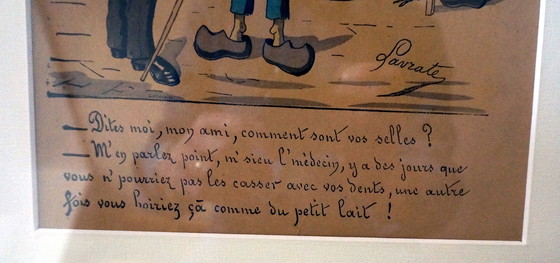 Lavrate
— Dites moi, mon ami, comment sont vos selles ?
— M'en parlez point, m'sieu l'médecin, y a des jours que
vous n'pourriez pas les casser avec vos dents, une autre
fois vous boiriez çā comme du petit lait !